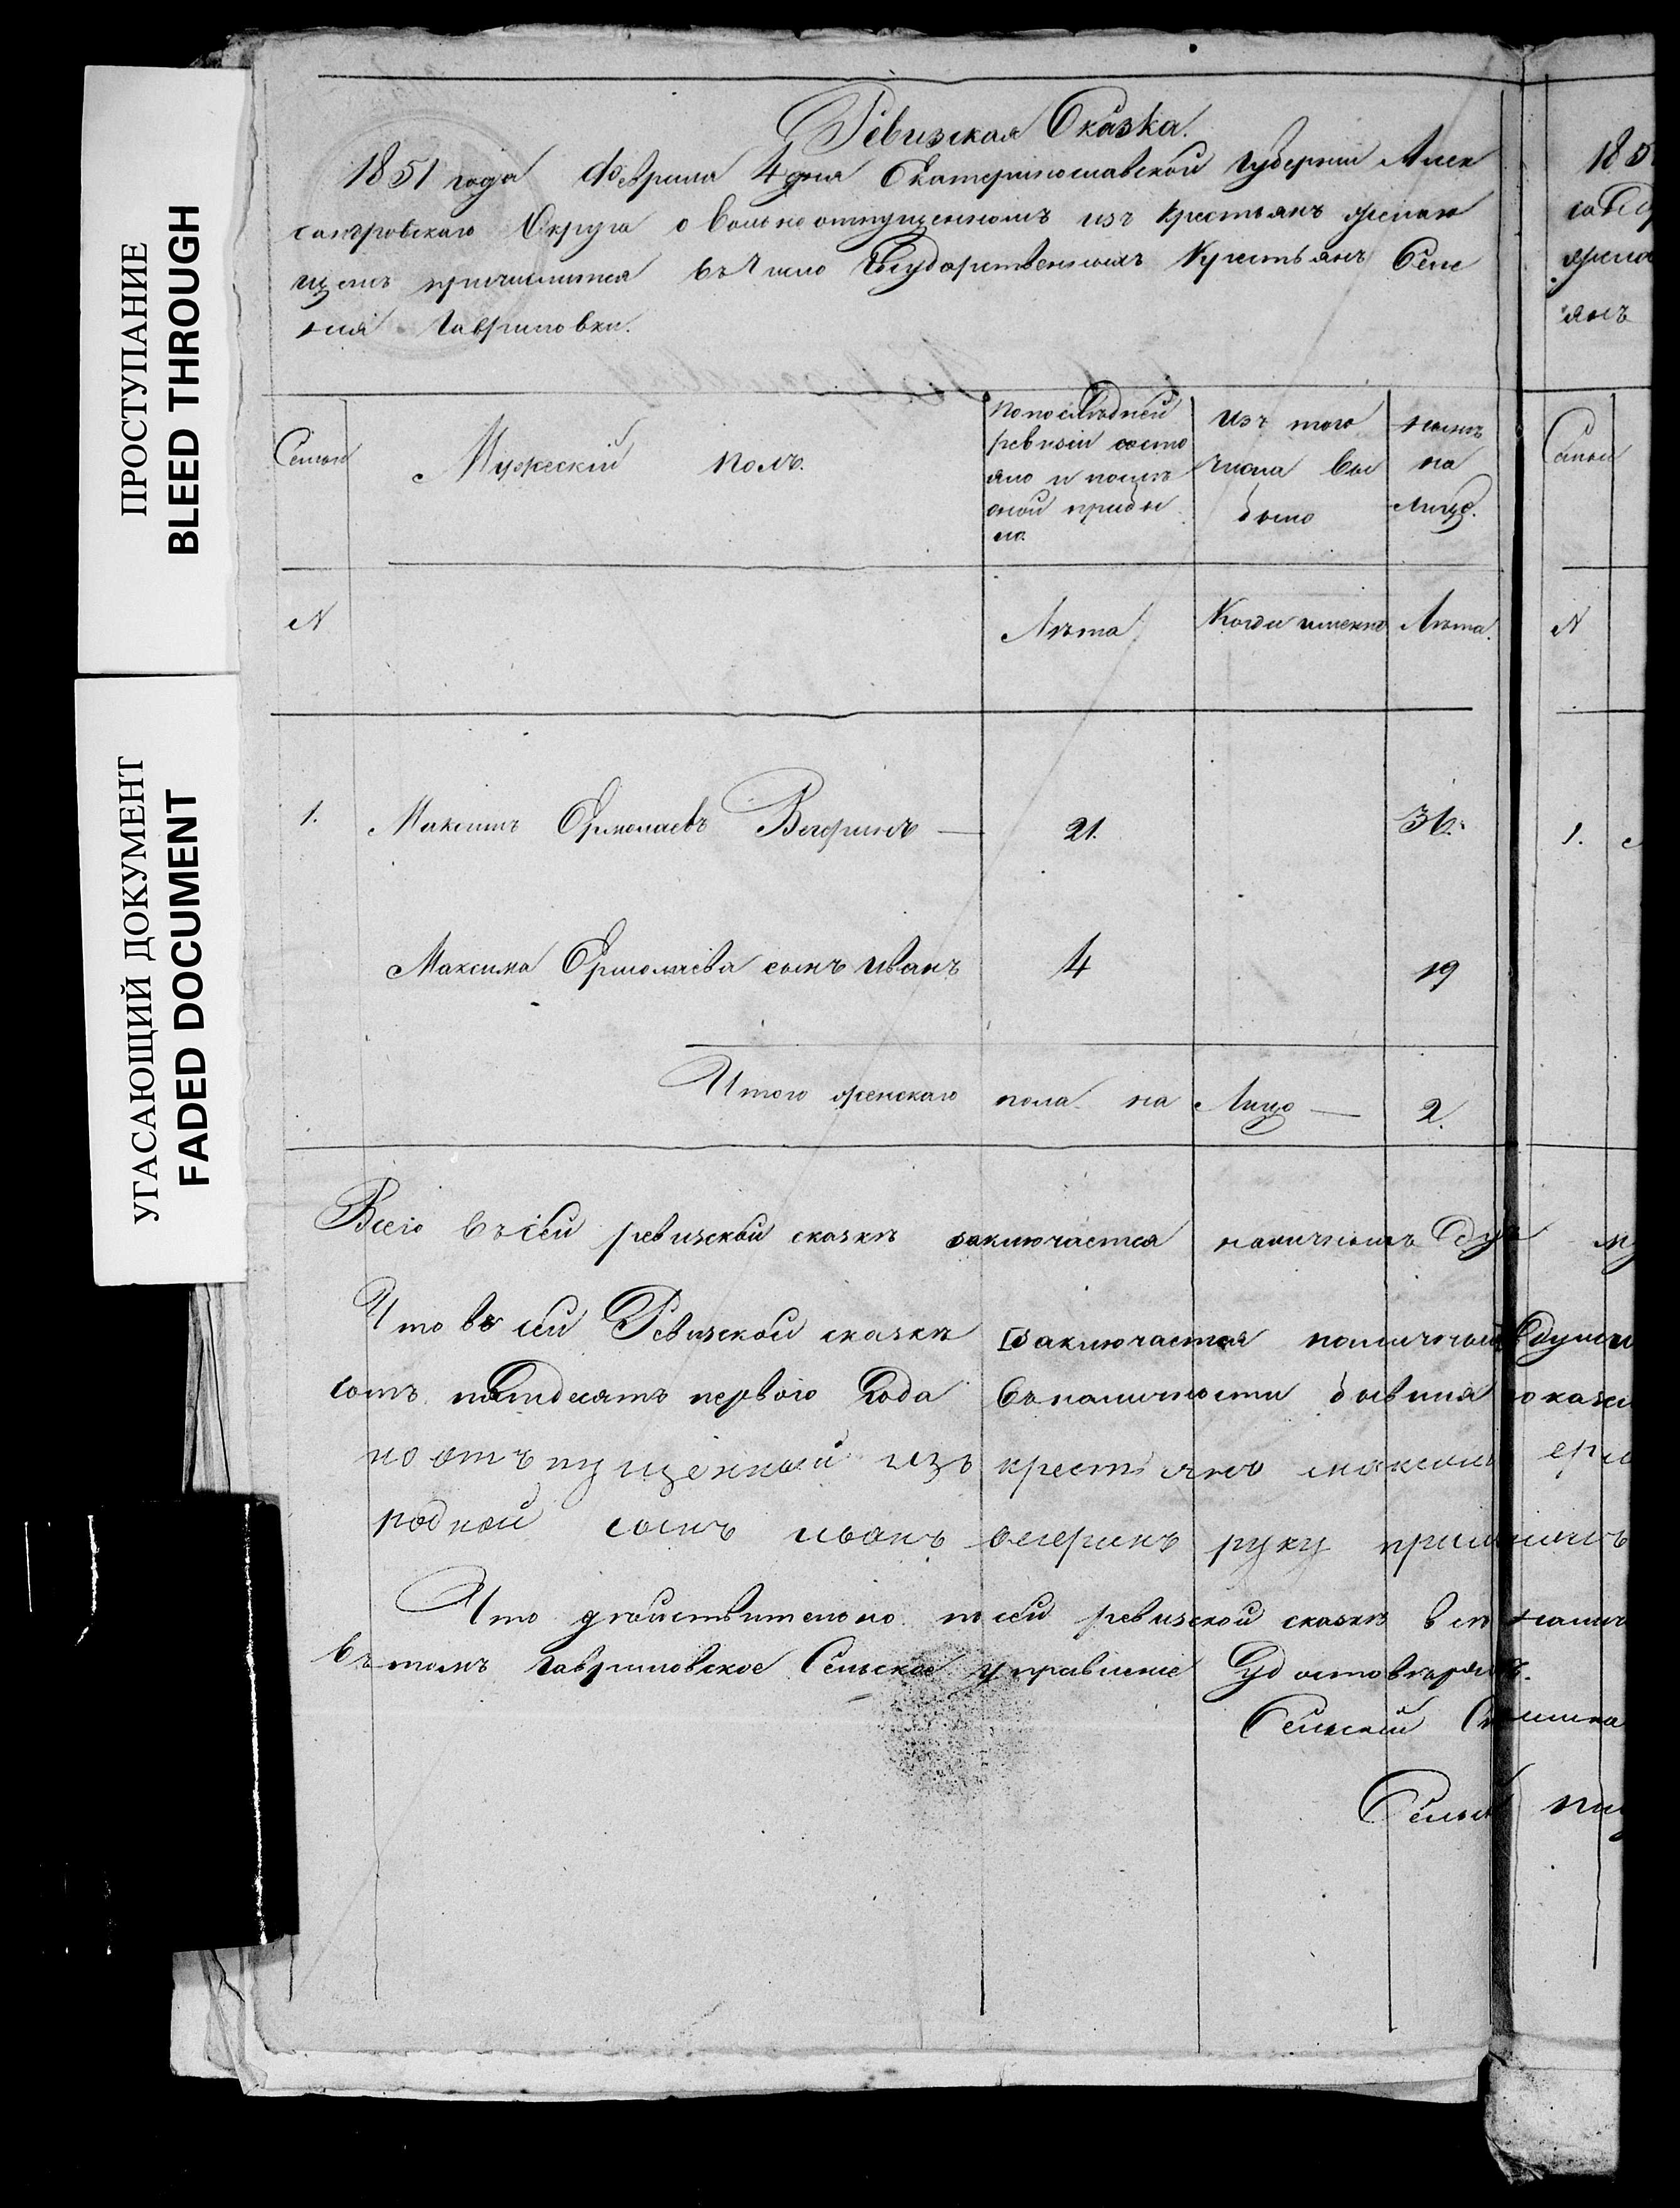 ПРОСТУПАНИЕ
BLEED THROUGH
УГАСАЮЩИЙ ДОКУМЕНТ
FADED DOCUMENT
Ревизская Сказка.
1851 года Февраля 4 дня Екатеринославской Губернии Алек
сандровскаго Округа о вольноотпущенномъ изъ крестьянъ желаю
щемъ причислится въ Число Государственныхъ Крестьянъ Селе
нія Гавриловки.
Семьи
Мужескій полъ.
По последней
ревизіи состо
яло и послѣ
оной прибы
ло.
Изъ того
числа вы
было
нынѣ
на
лицо.
N
Лѣта
Когда именно
Лѣта.
1. Максимъ Ермолаевъ 21. 36.
Максима Ермолаева сынъ Иванъ 4 19
Итого женскаго пола на Лицо — 2.
Всего въ сей ревизской сказкѣ заключается наличныхъ Душъ
Что въ сей Ревизской сказкѣ заключается
сотъ пятдесятъ перваго Года въ наличности бывшія
но отъпущенный изъ крестьянъ максимъ
родной сынъ иванъ руку приложилъ
Что дѣйствительно по сей ревизской сказкѣ всѣ
въ томъ Гавриловское Сельское управленіе Удостовѣряетъ.
Сельскій Старшина
185
N
1.